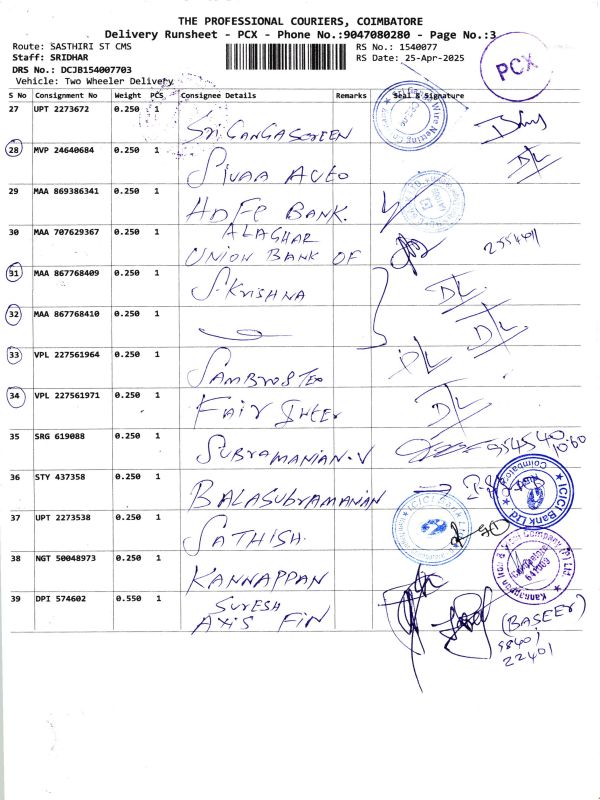 THE PROFESSIONAL COURIERS, COIMBATORE
Delivery Runsheet - PCX - Phone No.:9047080280 - Page No.:3
Route: SASTHIRI ST CMS
RS No.: 1540077
Staff: SRIDHAR
RS Date: 25-Apr-2025
DRS No.: DCJB154007703
Vehicle: Two Wheeler Delivery
PCX
S No Consignment No Weight PCS Consignee Details Remarks Seal & Signature
27 UPT 2273672 0.250 1 SRI GANGA SCREEN
28 MVP 24640684 0.250 1 SIVAA AUTO DL
29 MAA 869386341 0.250 1 HDFC BANK.
30 MAA 707629367 0.250 1 ALAGHAR
UNION BANK OF
31 MAA 867768409 0.250 1 S.KRISHNA DL
32 MAA 867768410 0.250 1 DL
33 VPL 227561964 0.250 1 DL
34 VPL 227561971 0.250 1 DL
35 SRG 619088 0.250 1 SUBRAMANIAN.V 954540
1060
36 STY 437358 0.250 1 BALASUBRAMANIAN
ICICI Bank Ltd
Coimbatore
37 UPT 2273538 0.250 1 SATHISH.
38 NGT 50048973 0.250 1 KANNAPPAN
Kannappan Iron & Steel Company (P) Ltd
39 DPI 574602 0.550 1 SURESH
AXIS FIN
(BASEER)
98401
22401